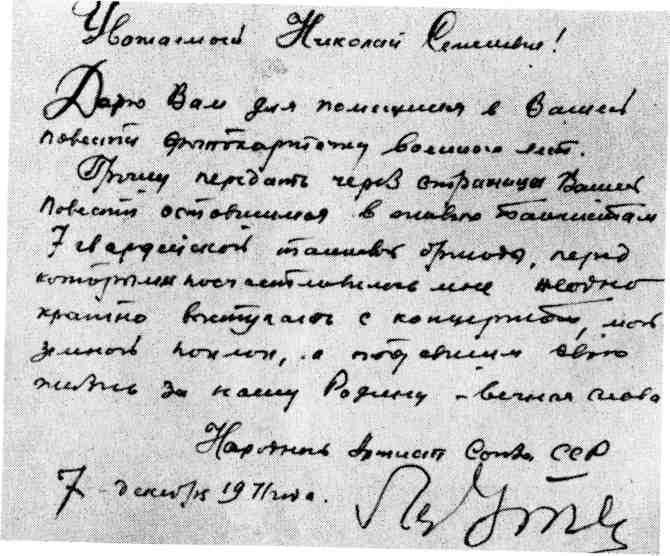 Уважаемый Николай Семенович!
Дарю Вам для помещения в Вашей
повести фотокарточку военных лет.
Прошу передать через страницы Вашей
повести оставшимся в живых танкистам
7 гвардейской танковой бригады, перед
которыми посчастливилось мне неодно
кратно выступать с концертом, мой
земной поклон, а отдавшим свою
жизнь за нашу Родину - вечная слава
Народный Артист Союза ССР
7 декабря 1971 года.